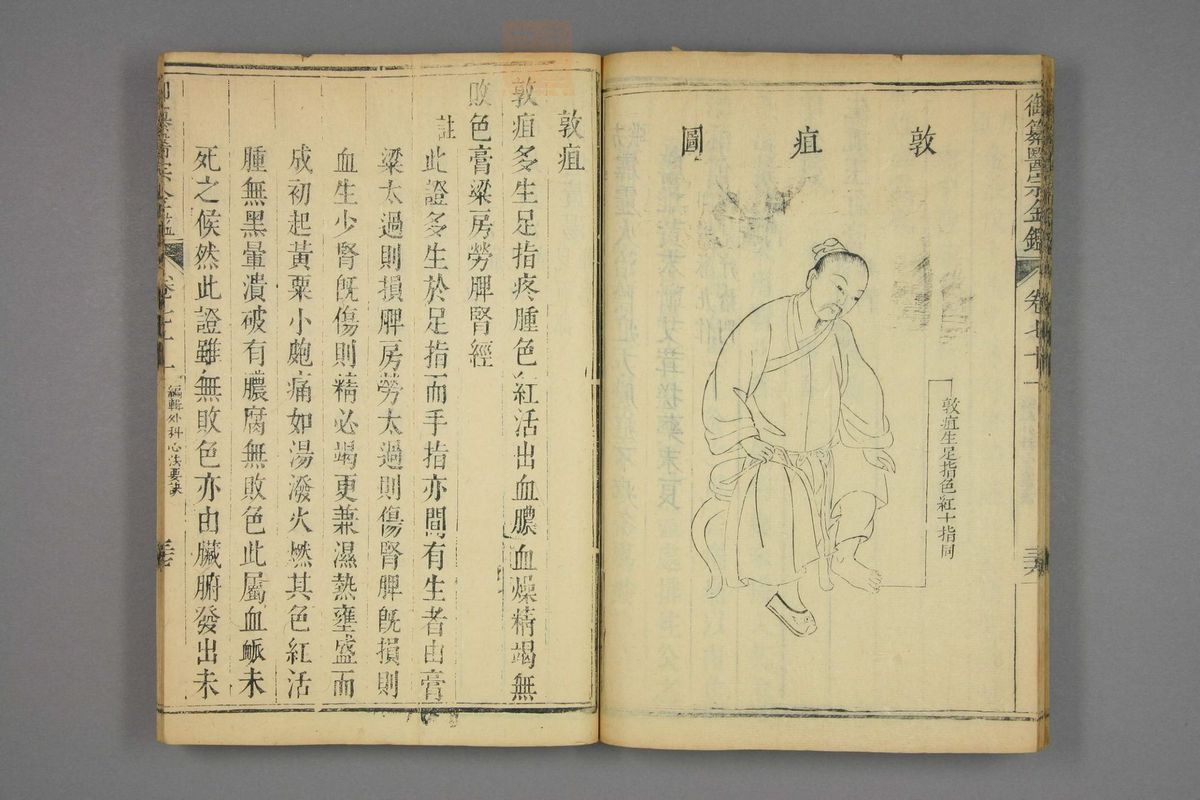 御纂醫宗金鑑 卷七十一
敦疽圖
敦疽生足指色紅十指同
敦疽
敦疽多生足指疼腫色紅活出血膿血燥精竭無
敗色膏粱房勞脾腎經
註此證多生於足指而手指亦間有生者由膏
粱太過則損脾房勞太過則傷腎脾旣損則
血生少腎旣傷則精必竭更兼濕熱壅盛而
成初起黃粟小皰痛如湯潑火燃其色紅活
腫無黑暈潰破有膿腐無敗色此屬血衇未
死之候然此證雖無敗色亦由臟腑發出未
編輯外科心法要訣